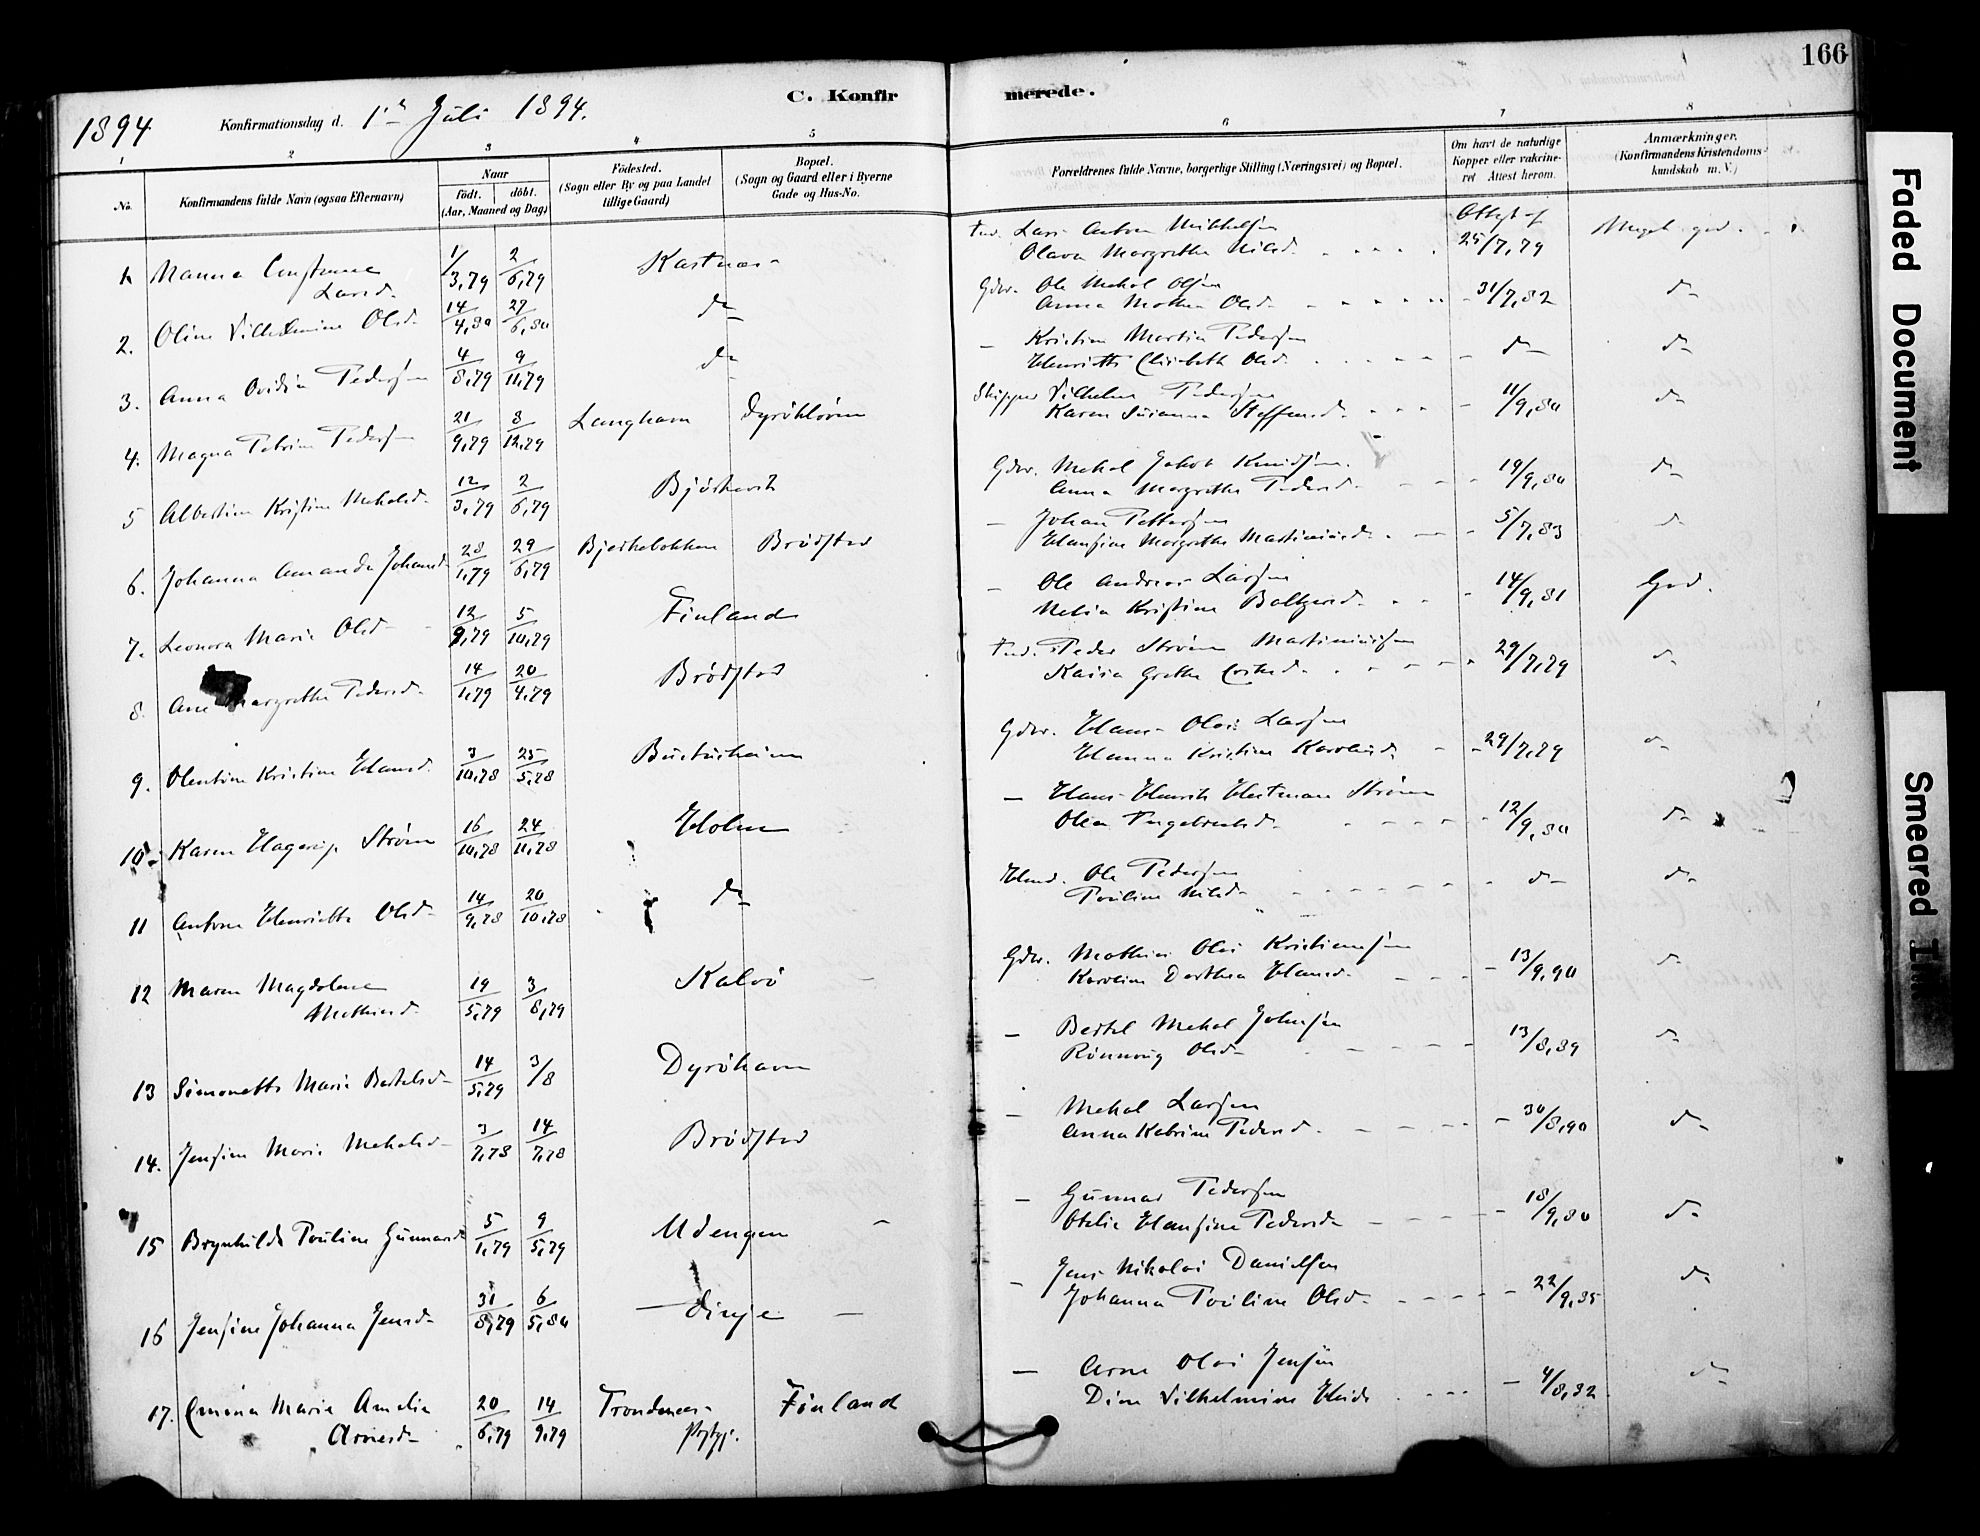 166
1894 Konfirmationsdag d. 1ste Juli 1894. C. Konfirmerede.
1 2 3 4 5 6 7 8
No. Konfirmandens fulde Navn (ogsaa Efternavn) Naar født. døbt. (Aar, Maaned og Dag) Fødested. (Sogn eller By og paa Landet tillige Gaard) Bopæl. (Sogn og Gaard eller i Byerne Gade og Hus-No. Forældrenes fulde Navne, borgerlige Stilling (Næringsvei) og Bopæl. Om havt de naturlige Kopper eller vakcineret Attest herom. Anmærkninger. (Konfirmandens Kristendomskundskab m. V.)
1. Nanna Larsd. 1/3,79 2/6,79 Kastnes Lars Anton Mikkelsen
Olava Margrethe Nilsd. 25/7,79 Meget god.
2. Oline Vilhelmine Olsd. 14/4,80 27/6,80 do Gdbr. Ole Mekal Olsen
Anna Mathea Olsd. 31/7,82 do
3. Anna Ovidia Pedersen 4/8,79 9/11,79 do – Kristian Martin Pedersen
Henriette Elisabeth Olsd. do do
4. Magna Petrine Pedersen 21/9,79 8/12,79 Langhavn Skipper Vilhelm Pedersen
Karen Susanna Steffensd. 11/9,80 do
5 Albertine Kristine Mekalsd. 12/3,79 2/6,79 Gdbr. Mekal Jakob Knudsen.
Anna Margrethe Pedersd. 19/9,80 do
6. Johanna Amanda Johansd. 28/1,79 29/6,79 Brødstad – Johan Pettersen
Hansine Margrethe 5/7,83 do
7. Leonora Marie Olsd. 12/9,79 5/10,79 Finland – Ole Andreas Larsen
Kristine 14/9,81 God.
8. Ane Margrethe Pedersd. 14/1,79 20/4,79 Brødstad Peder Strøm
Kaisa Grethe 29/7,79 do
9. Olentine Kristine Hansd. 3/10,78 25/5,78 Gdbr. Hans Olai Larsen
Hanna Kristine 29/7,79 do
10. Karen Hagerup Strøm 16/10,78 24/11,78 Holm – Hans Henrik Hartman Strøm
Olea Ingebrectsd. 12/9,80 do
11 Antona Henriette Olsd. 14/9,78 20/10,78 do Ole Pedersen
Pauline Nilsd. do do
12 Maren Magdalena
Mathiesd. 19/5,79 3/8,79 Kalvø Gdbr. Mathias Olai Kristiansen
Karoline Dorthea Hansd. 13/9,90 do
13 Simonette Marie Bertelsd. 14/5,79 3/8 Dyrøhavn – Bertel Mekal Johnsen
Rønnoug Olsd. 13/8,89 do
14. Jensine Marie Mekalsd. 3/7,78 14/7,78 Brødstad – Mekal Larsen
Anna Katrine Pedersd. 30/8,90 do
15 Brynhilda Pauline Gunnarsd. 5/1,79 9/5,79 Udengen – Gunnar Pedersen
Otelie Hansine Pedersd. 18/9,80 do
16 Jensine Johanna Jensd. 31/8,79 6/5,80 – – Jens Nikolai Danielsen
Johanna Pauline Olsd. 22/9,85 do
17. Emma Marie Amalia
Arnesd. 20/6,79 14/9,79 Trondenes Finland – Arne Olai Jensen
Dina Vilhelmine 4/8,82 do
Faded Document
Smeared Ink